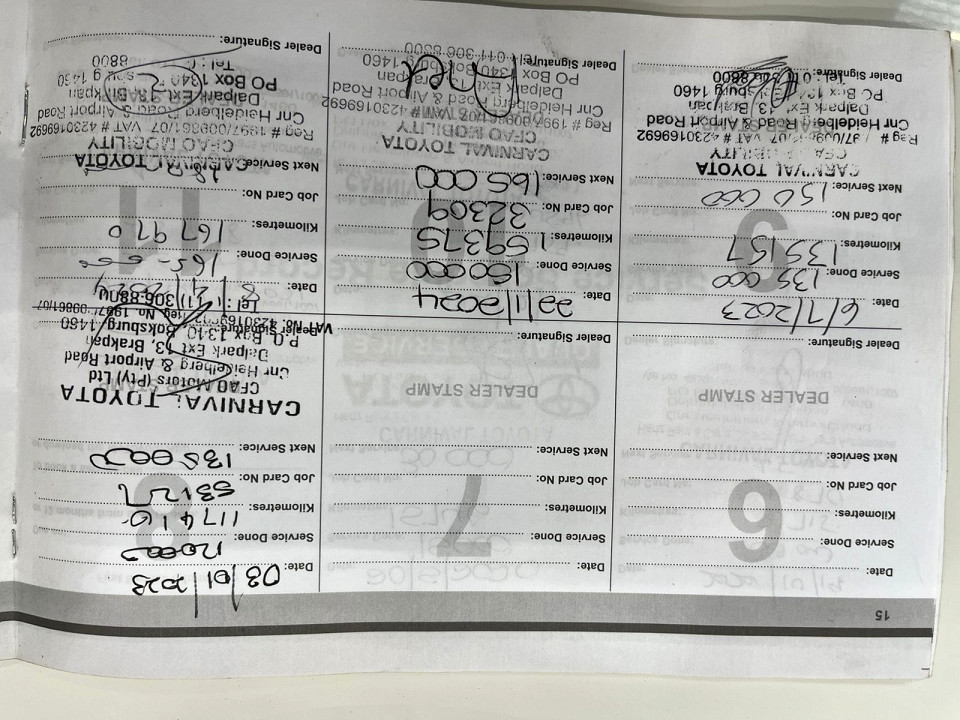 15
6
Date:
Service Done:
Kilometres:
Job Card No:
Next Service:
DEALER STAMP
Dealer Signature:
7
Date:
Service Done:
Kilometres:
Job Card No:
Next Service:
DEALER STAMP
Dealer Signature:
8
Date: 03/01/2023
Service Done: 120000
Kilometres: 117410
Job Card No:
Next Service: 135000
CARNIVAL TOYOTA
CFAO Motors (Pty) Ltd
Cnr Heidelberg & Airport Road
Dalpark Ext 13, Brakpan
P.O. Box 1340, Boksburg, 1460
Dealer Signature:
9
Date: 6/7/2023
Service Done: 135 000
Kilometres: 135157
Job Card No:
Next Service: 150 000
CARNIVAL TOYOTA
CFAO MOBILITY
Reg # 1997/009661/07 VAT # 4230169692
Cnr Heidelberg Road & Airport Road
Dalpark Ext 13 Brakpan
PO Box 1340 Boksburg 1460
Dealer Signature:
Date: 22/11/2024
Service Done: 150000
Kilometres: 159375
Job Card No: 32309
Next Service: 165 000
CARNIVAL TOYOTA
CFAO MOBILITY
Reg # 1997/009661/07 VAT # 4230169692
Cnr Heidelberg Road & Airport Road
Dalpark Ext 13 Brakpan
PO Box 1340 Boksburg 1460
Tel : 011 306 8800
Dealer Signature:
11
Date:
Service Done: 165-000
Kilometres: 167970
Job Card No:
Next Service:
CARNIVAL TOYOTA
CFAO MOBILITY
Reg # 1997/009661/07 VAT # 4230169692
Cnr Heidelberg Road & Airport Road
Dalpark Ext 13 Brakpan
PO Box 1340 Boksburg 1460
Dealer Signature: